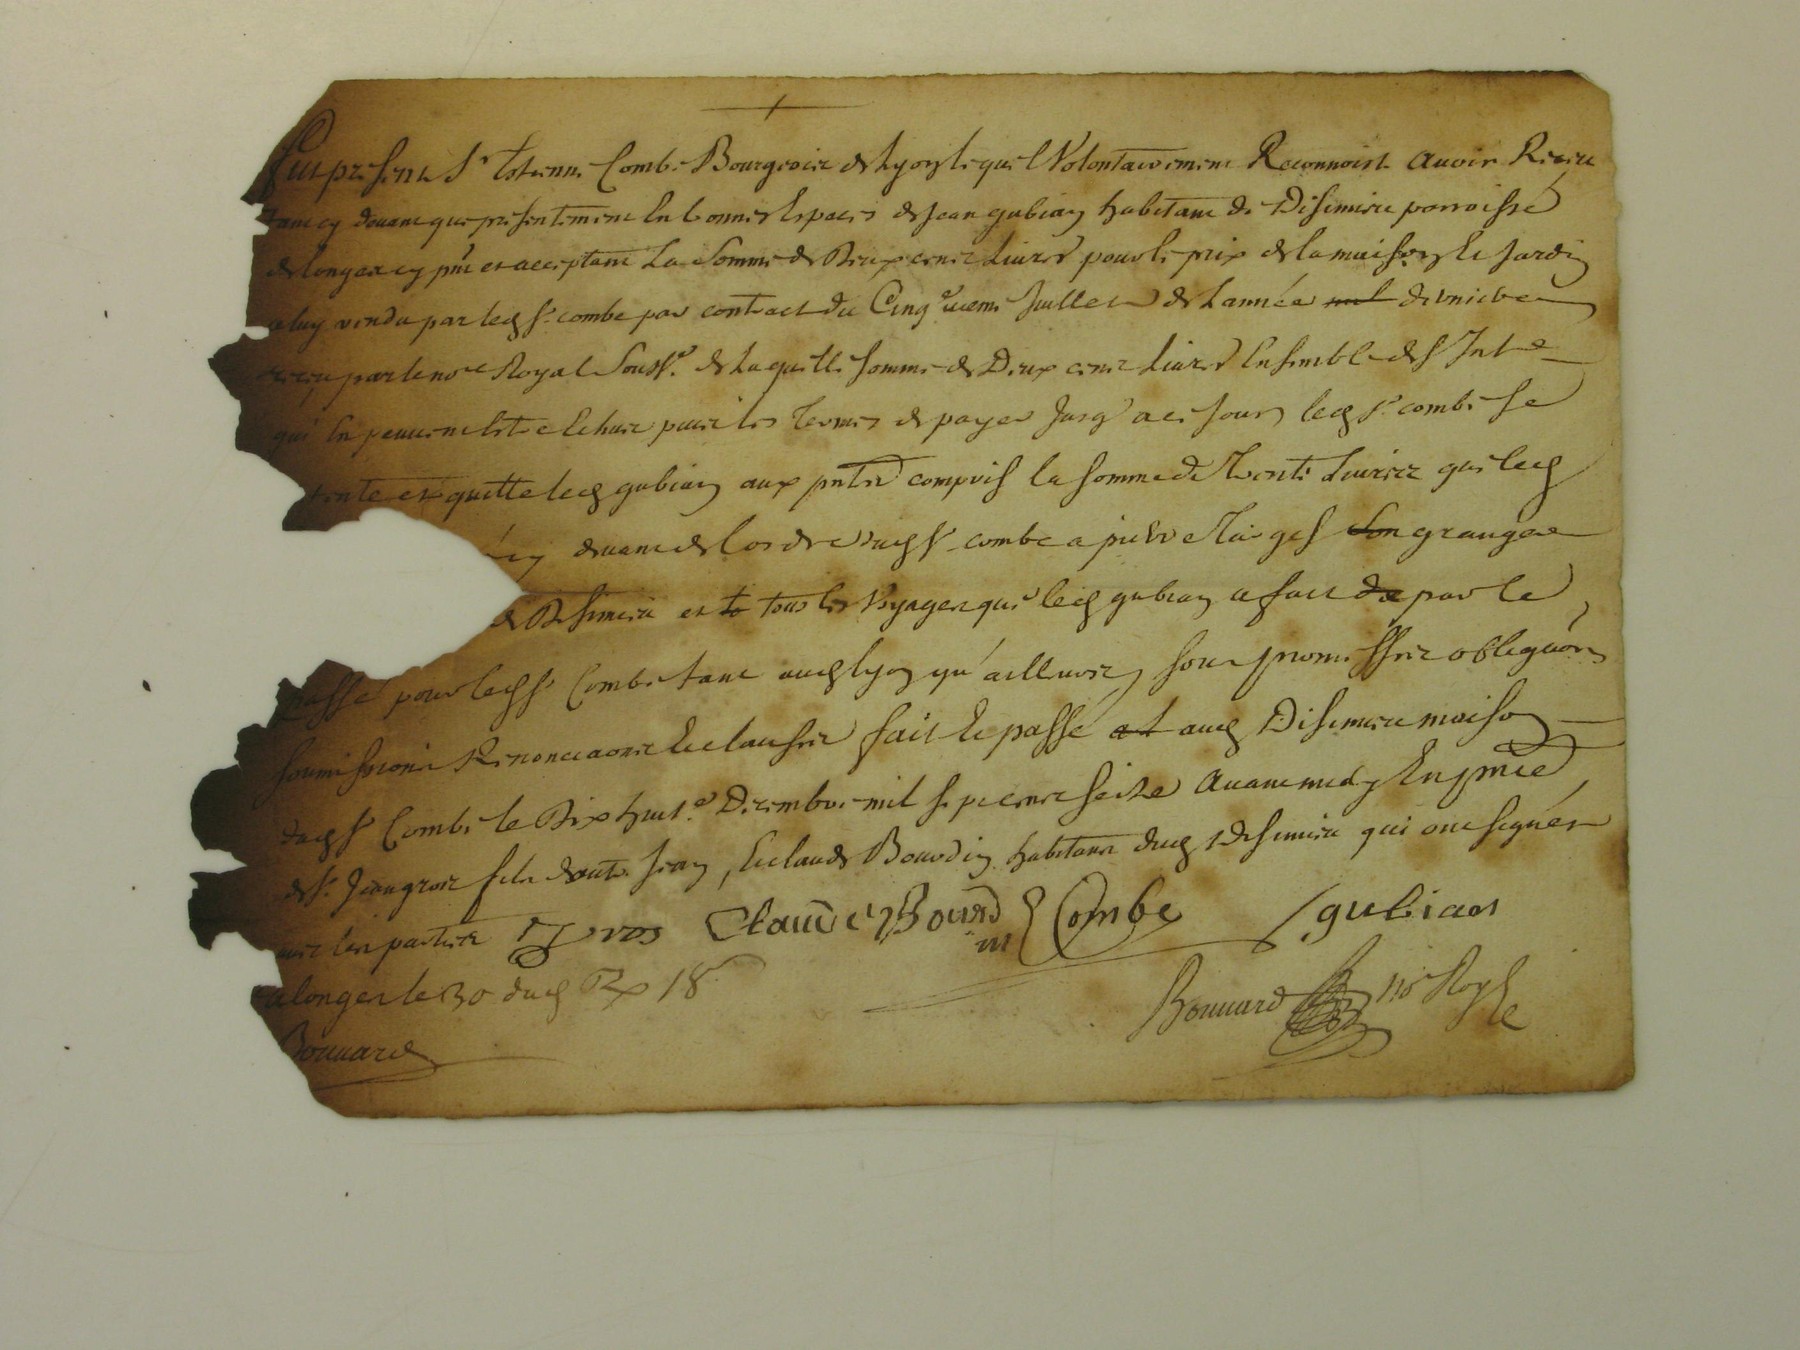 Fut présent Sr Estienne Combe Bourgeois de Lyon lequel Volontairement Reconnoist auoir Receu
tant cy deuant que presentement En bonnes Espaces de Jean gubian habitant de Disimieu parroisse
de longes cy pnt et acceptant La Somme de Deux cents Liures pour le prix de la maison Et Jardin
a luy vendu par led Sr combe par contract du Cinq uieme Juillet de L'année dernière
receu par le nore Royal Soussé. de Laquelle somme de Deux cents Liures Ensemble des Inte
qui En peuuent Estre Echuts pour les Termes de payer Jusq' a ce Jour led Sr combe se
tente et quitte led gubian aux pntes compris la somme de Trente Liures que led
cy deuant de l'ordre dud Sr combe a pierre granger
de Disimieu et tous les Voyages que led gubian a fait par le
passé pour led Sr Combe tant aud lyon qu'ailleurs sous promesses obligaons
soumissions Renonciaons Et clauses fait Et passé aud Disimieu maison
dud Sr Combe le Dix huite Decembre mil sept cents seize auant midy En pnce
de Sr Jean gros fils d'autre Jean, Et claude Bourdin habitants dud Disimieu qui ont signés
auec les parties J gros Claude Bourdin Combe J gubian
a longes le 30 dud Rx 18s
Bouuard
Bouuard no Royl